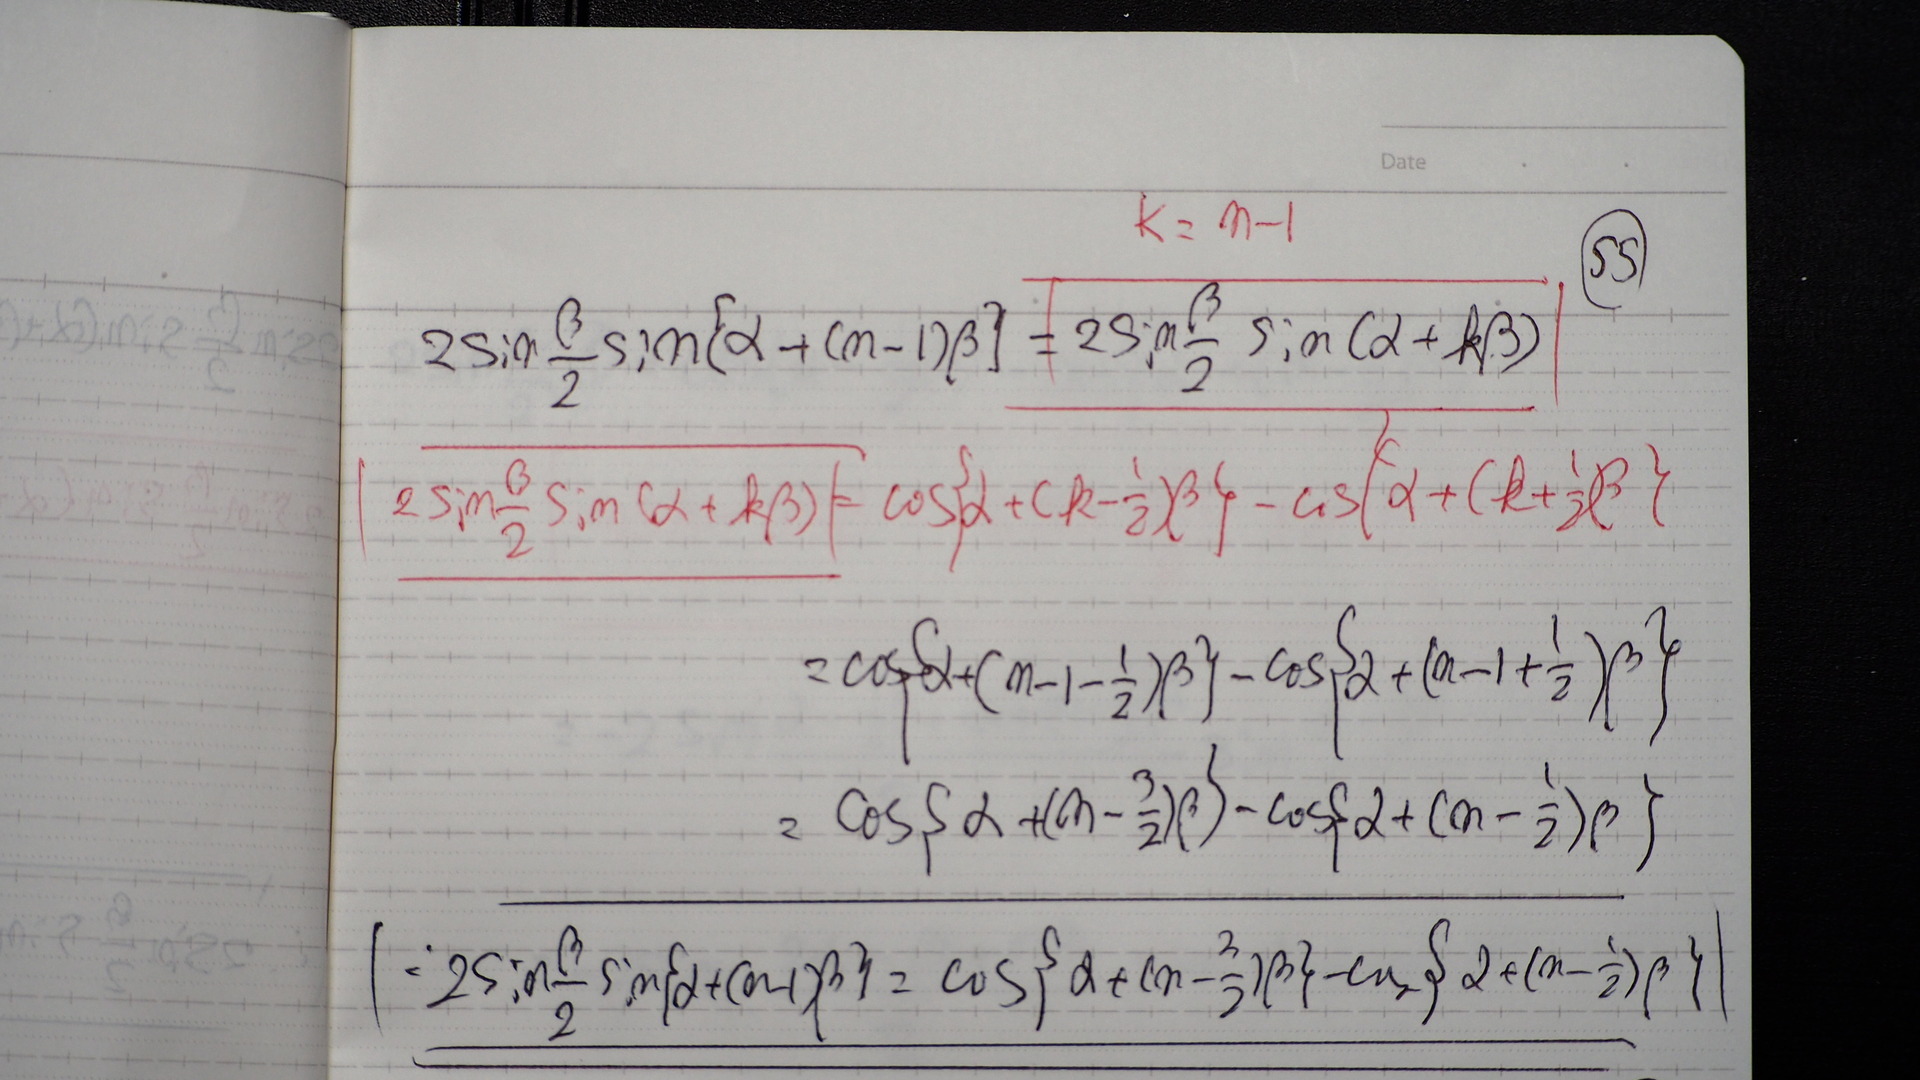 Date
k = n-1
55
2 sin β/2 sin{α + (n-1)β} = 2 sin β/2 sin (α + kβ)
2 sin β/2 sin (α + kβ) = cos{α + (k - 1/2)β} - cos{α + (k + 1/2)β}
= cos{α + (n-1-1/2)β} - cos{α + (n-1+1/2)β}
= cos{α + (n - 3/2)β} - cos{α + (n - 1/2)β}
∴ 2 sin β/2 sin{α + (n-1)β} = cos{α + (n - 3/2)β} - cos{α + (n - 1/2)β}